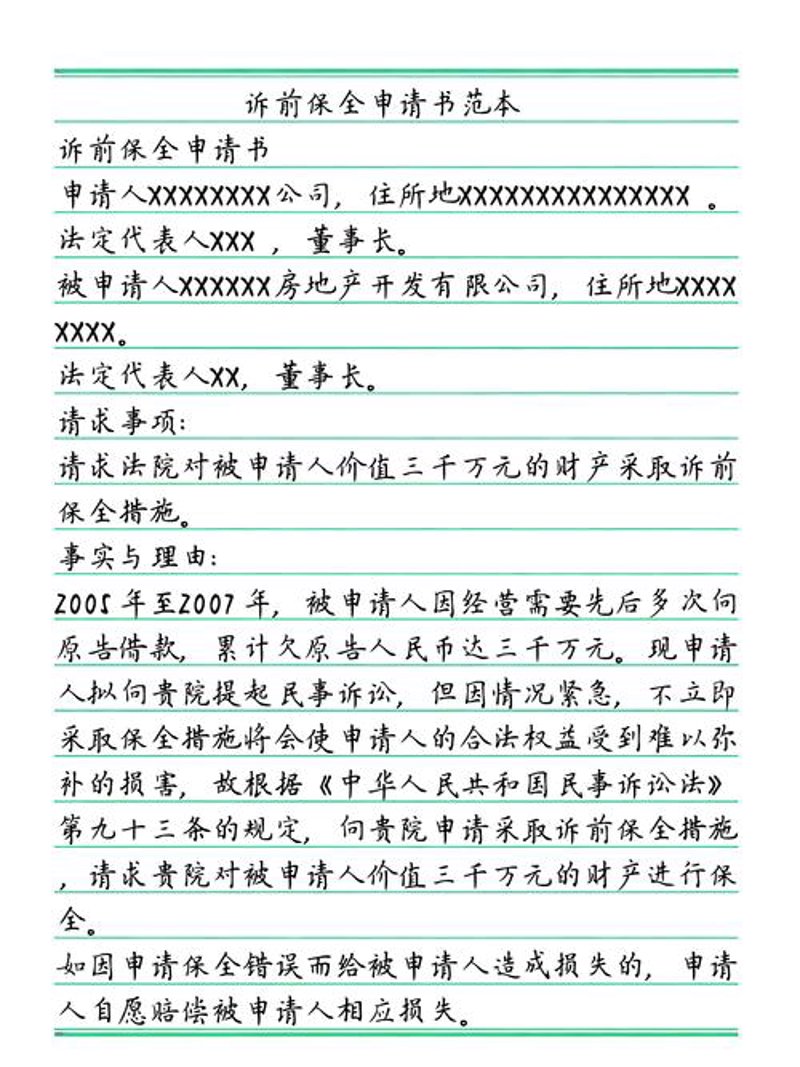 诉前保全申请书范本
诉前保全申请书
申请人XXXXXXXX公司, 住所地XXXXXXXXXXXXXXX 。
法定代表人XXX , 董事长。
被申请人XXXXXX房地产开发有限公司, 住所地XXXX
XXXX。
法定代表人XX, 董事长。
请求事项:
请求法院对被申请人价值三千万元的财产采取诉前
保全措施。
事实与理由:
2005 年至2007 年, 被申请人因经营需要先后多次向
原告借款, 累计欠原告人民币达三千万元。现申请
人拟向贵院提起民事诉讼, 但因情况紧急, 不立即
采取保全措施将会使申请人的合法权益受到难以弥
补的损害, 故根据《中华人民共和国民事诉讼法》
第九十三条的规定, 向贵院申请采取诉前保全措施
, 请求贵院对被申请人价值三千万元的财产进行保
全。
如因申请保全错误而给被申请人造成损失的, 申请
人自愿赔偿被申请人相应损失。